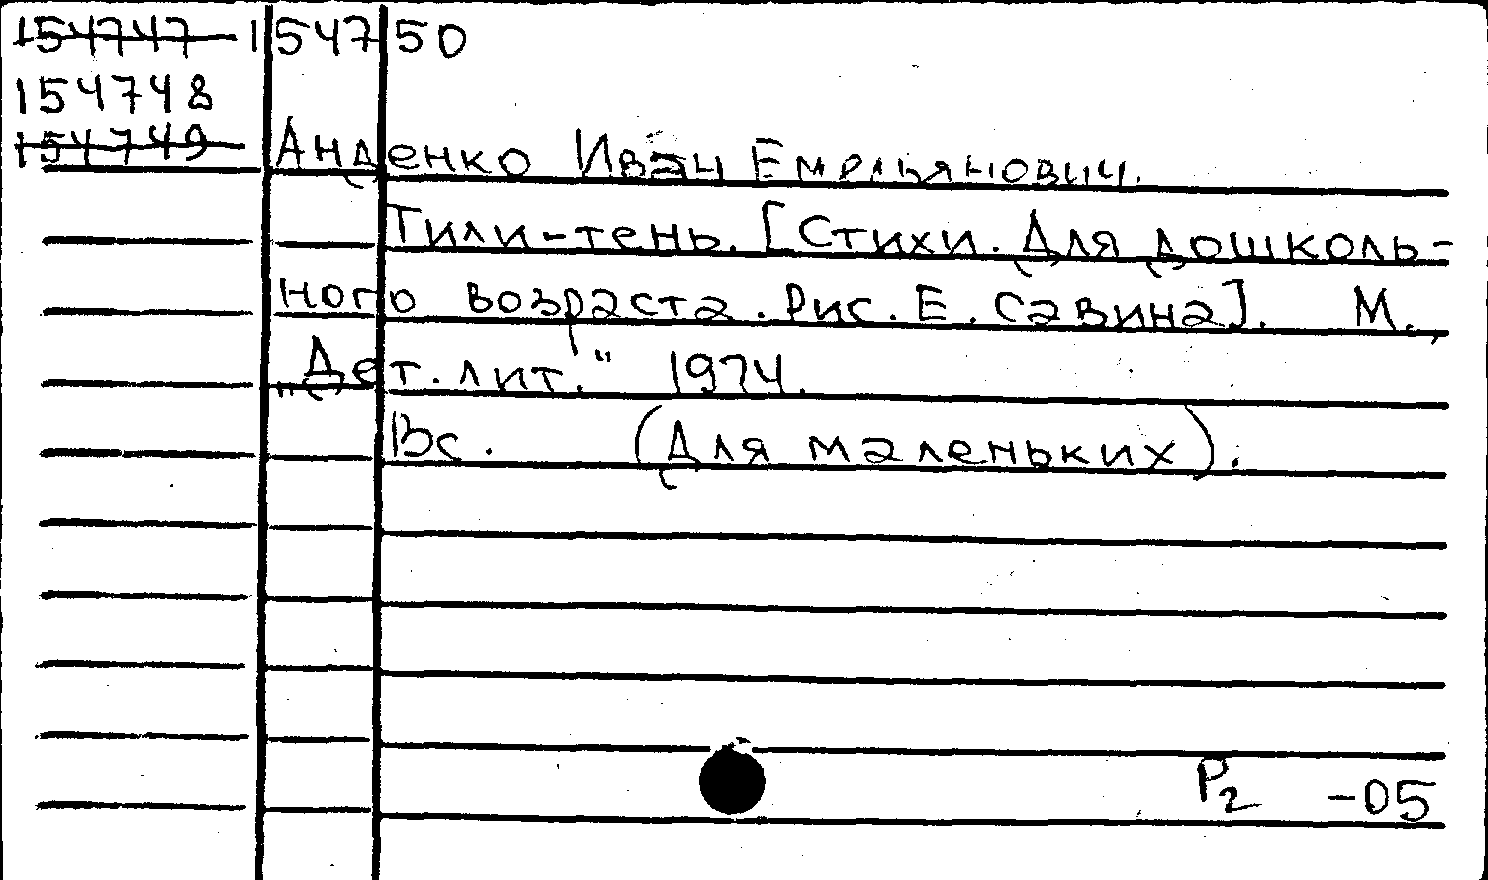 154747 154750
154748
154749 Анденко Иван Емельянович.
Тили-тень. [Стихи. Для дошколь-
ного возраста. Рис. Е. Савина]. М.,
„Дет. лит." 1974.
Вс. (Для маленьких).
Р2 -05